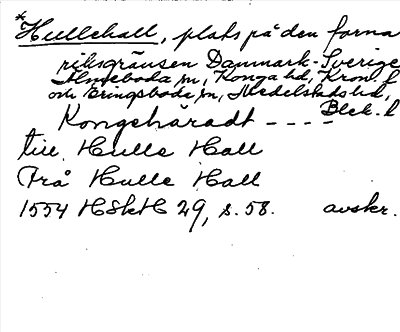 * Hullehall, plats på den forna
riksgränsen Danmark-Sverige
Älmeboda sn, Konga hd, Kron. l
och Eringsboda sn, Medelstads hd,
Blek. l
Kongehäradt - - - -
till Hulle Hall
Frå Hulle Hall
1554 HSkH 29, s. 58. avskr.